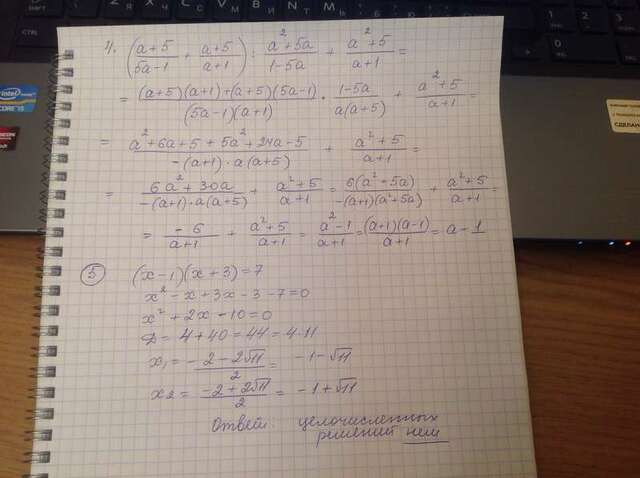 4. ((a+5)/(5a-1) + (a+5)/(a+1)) : (a²+5a)/(1-5a) + (a²+5)/(a+1) =
= ((a+5)(a+1)+(a+5)(5a-1))/((5a-1)(a+1)) · (1-5a)/(a(a+5)) + (a²+5)/(a+1) =
= (a²+6a+5+5a²+24a-5)/(-(a+1)·a(a+5)) + (a²+5)/(a+1) =
= (6a²+30a)/(-(a+1)·a(a+5)) + (a²+5)/(a+1) = 6(a²+5a)/(-(a+1)(a²+5a)) + (a²+5)/(a+1) =
= -6/(a+1) + (a²+5)/(a+1) = (a²-1)/(a+1) = (a+1)(a-1)/(a+1) = a-1
5 (x-1)(x+3)=7
x²-x+3x-3-7=0
x²+2x-10=0
D=4+40=44=4·11
x₁=(-2-2√11)/2= -1-√11
x₂=(-2+2√11)/2= -1+√11
Ответ: целочисленных
решений нет
intel
CORE i5
AMD
RADEON
СДЕЛАН